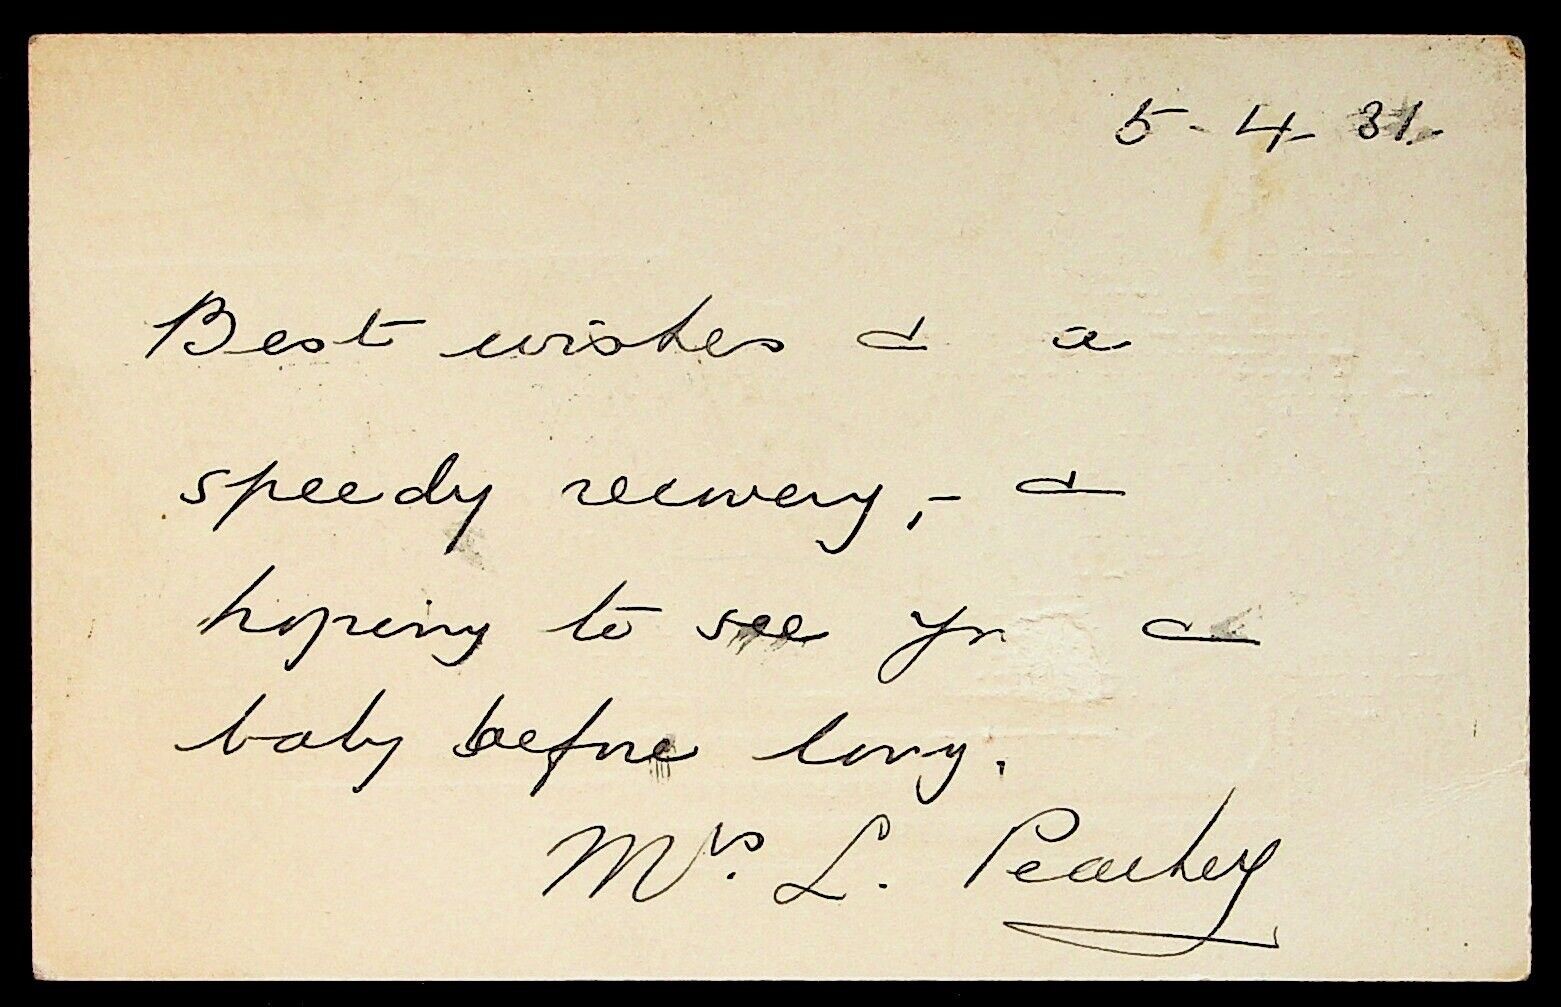 5-4-31.
Best wishes & a
speedy recovery,- &
hoping to see yr &
baby before long.
Mrs. L. Peachey